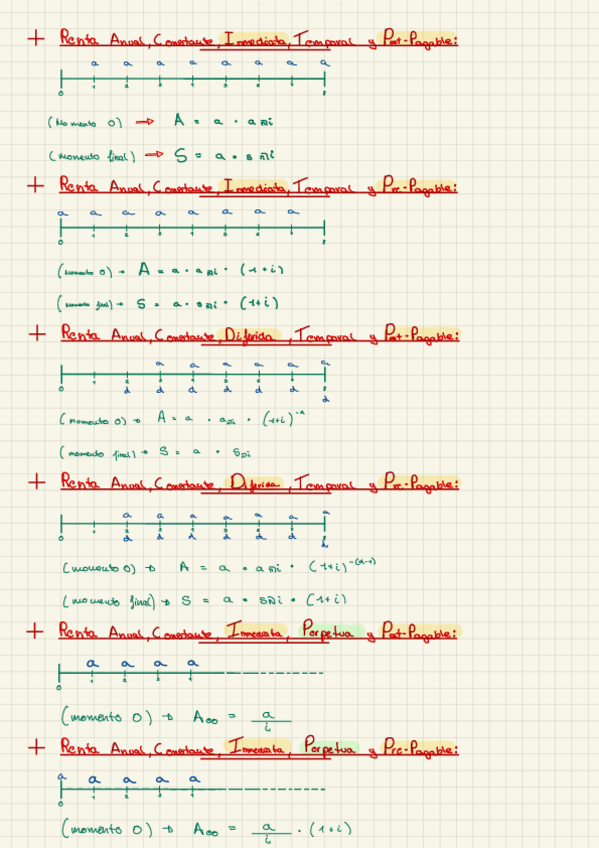 + Renta Anual, Constante, Inmediata, Temporal y Post-Pagable:
a a a a a a a a
0 1 2 3 4 5 6 7
(Momento 0) → A = a · a n̄ i
(Momento final) → S = a · s n̄ i
+ Renta Anual, Constante, Inmediata, Temporal y Pre-Pagable:
a a a a a a a a
(momento 0) → A = a · a n̄ i · (1+i)
(momento final) → S = a · s n̄ i · (1+i)
+ Renta Anual, Constante, Diferida, Temporal y Post-Pagable:
a a a a a a
0 1
d d d d d d d
(momento 0) → A = a · a n̄ i · (1+i)
(momento final) → S = a · s n̄ i
+ Renta Anual, Constante, Diferida, Temporal y Pre-Pagable:
a a a a a a a
0 1
d d d d d d d
(momento 0) → A = a · a n̄ i · (1+i)^-(d-1)
(momento final) → S = a · s n̄ i · (1+i)
+ Renta Anual, Constante, Inmediata, Perpetua y Post-Pagable:
a a a a
0 1 2 3 4
(momento 0) → A∞ = a / i
+ Renta Anual, Constante, Inmediata, Perpetua y Pre-Pagable:
a a a a a
0 1 2 3 4
(momento 0) → A∞ = a / i · (1+i)